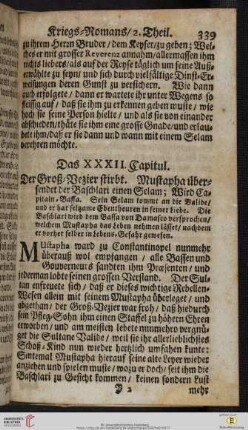 Kriegs-Romans/2. Theil. 339
zu ihrem Herrn Bruder / dem Keyser/zu geben; Wel-
ches er mit grosser Reverenz annahm/allermassen ihm
nichts liebers/als auf der Reyse täglich um seine Auß-
erwählte zu seyn/ und sich durch vielfältige Dinst-Er-
weisungen deren Gunst zu versichern. Wie dann
auch erfolgete / dann er wartete ihr unter Wegens so
fleissig auf / daß sie ihm zu erkennen geben muste / wie
hoch sie seine Person hielte / und als sie von einander
abscheiden/thäte sie ihm eine grosse Gnade/und erlaub-
te ihm/daß er sie dann und wann mit einem Selam
berehren möchte.
Das XXXII. Capitul.
Der Groß-Vezier stirbt. Mustapha über-
sendet der Baschlari einen Selam; Wird Ca-
pitain-Bassa. Sein Selam kommt an die Valide/
und er hat seltzame Ebentheuren in seiner Liebe. Die
Baschlari wird dem Bassa von Damasco versprochen/
welchem Mustapha das Leben nehmen lässet / nachdem
er vorher selber in Lebens-Gefahr gewesen.
Mustapha ward zu Constantinopel nunmehr
überauß wol empfangen / alle Bassen und
Gouverneurs sandten ihm Præsenten / und
jederman lobte seinen grossen Verstand. Der Sul-
tan ersreuete sich / daß er dieses wichtige Rebellen-
Wesen allein mit seinem Mustapha überleget / und
abgethan / der Groß-Vezier war froh/ daß hiedurch
sein Pfleg-Sohn ihm einen Staffel zu höhern Ehren
erworben / und am meisten lebete nunmehro vergnü-
get die Sultane Valide / weil sie ihr allerlieblichstes
Schoß-Kind nun wieder herzlich umfahen kunte:
Sintemal Mustapha hierauf seine alte Leyer wieder
anziehen und spielen muste/ wozu er doch/ seit ihm die
Baschlari zu Gesicht kommen / keinen sondern Lust
Y 2 mehr